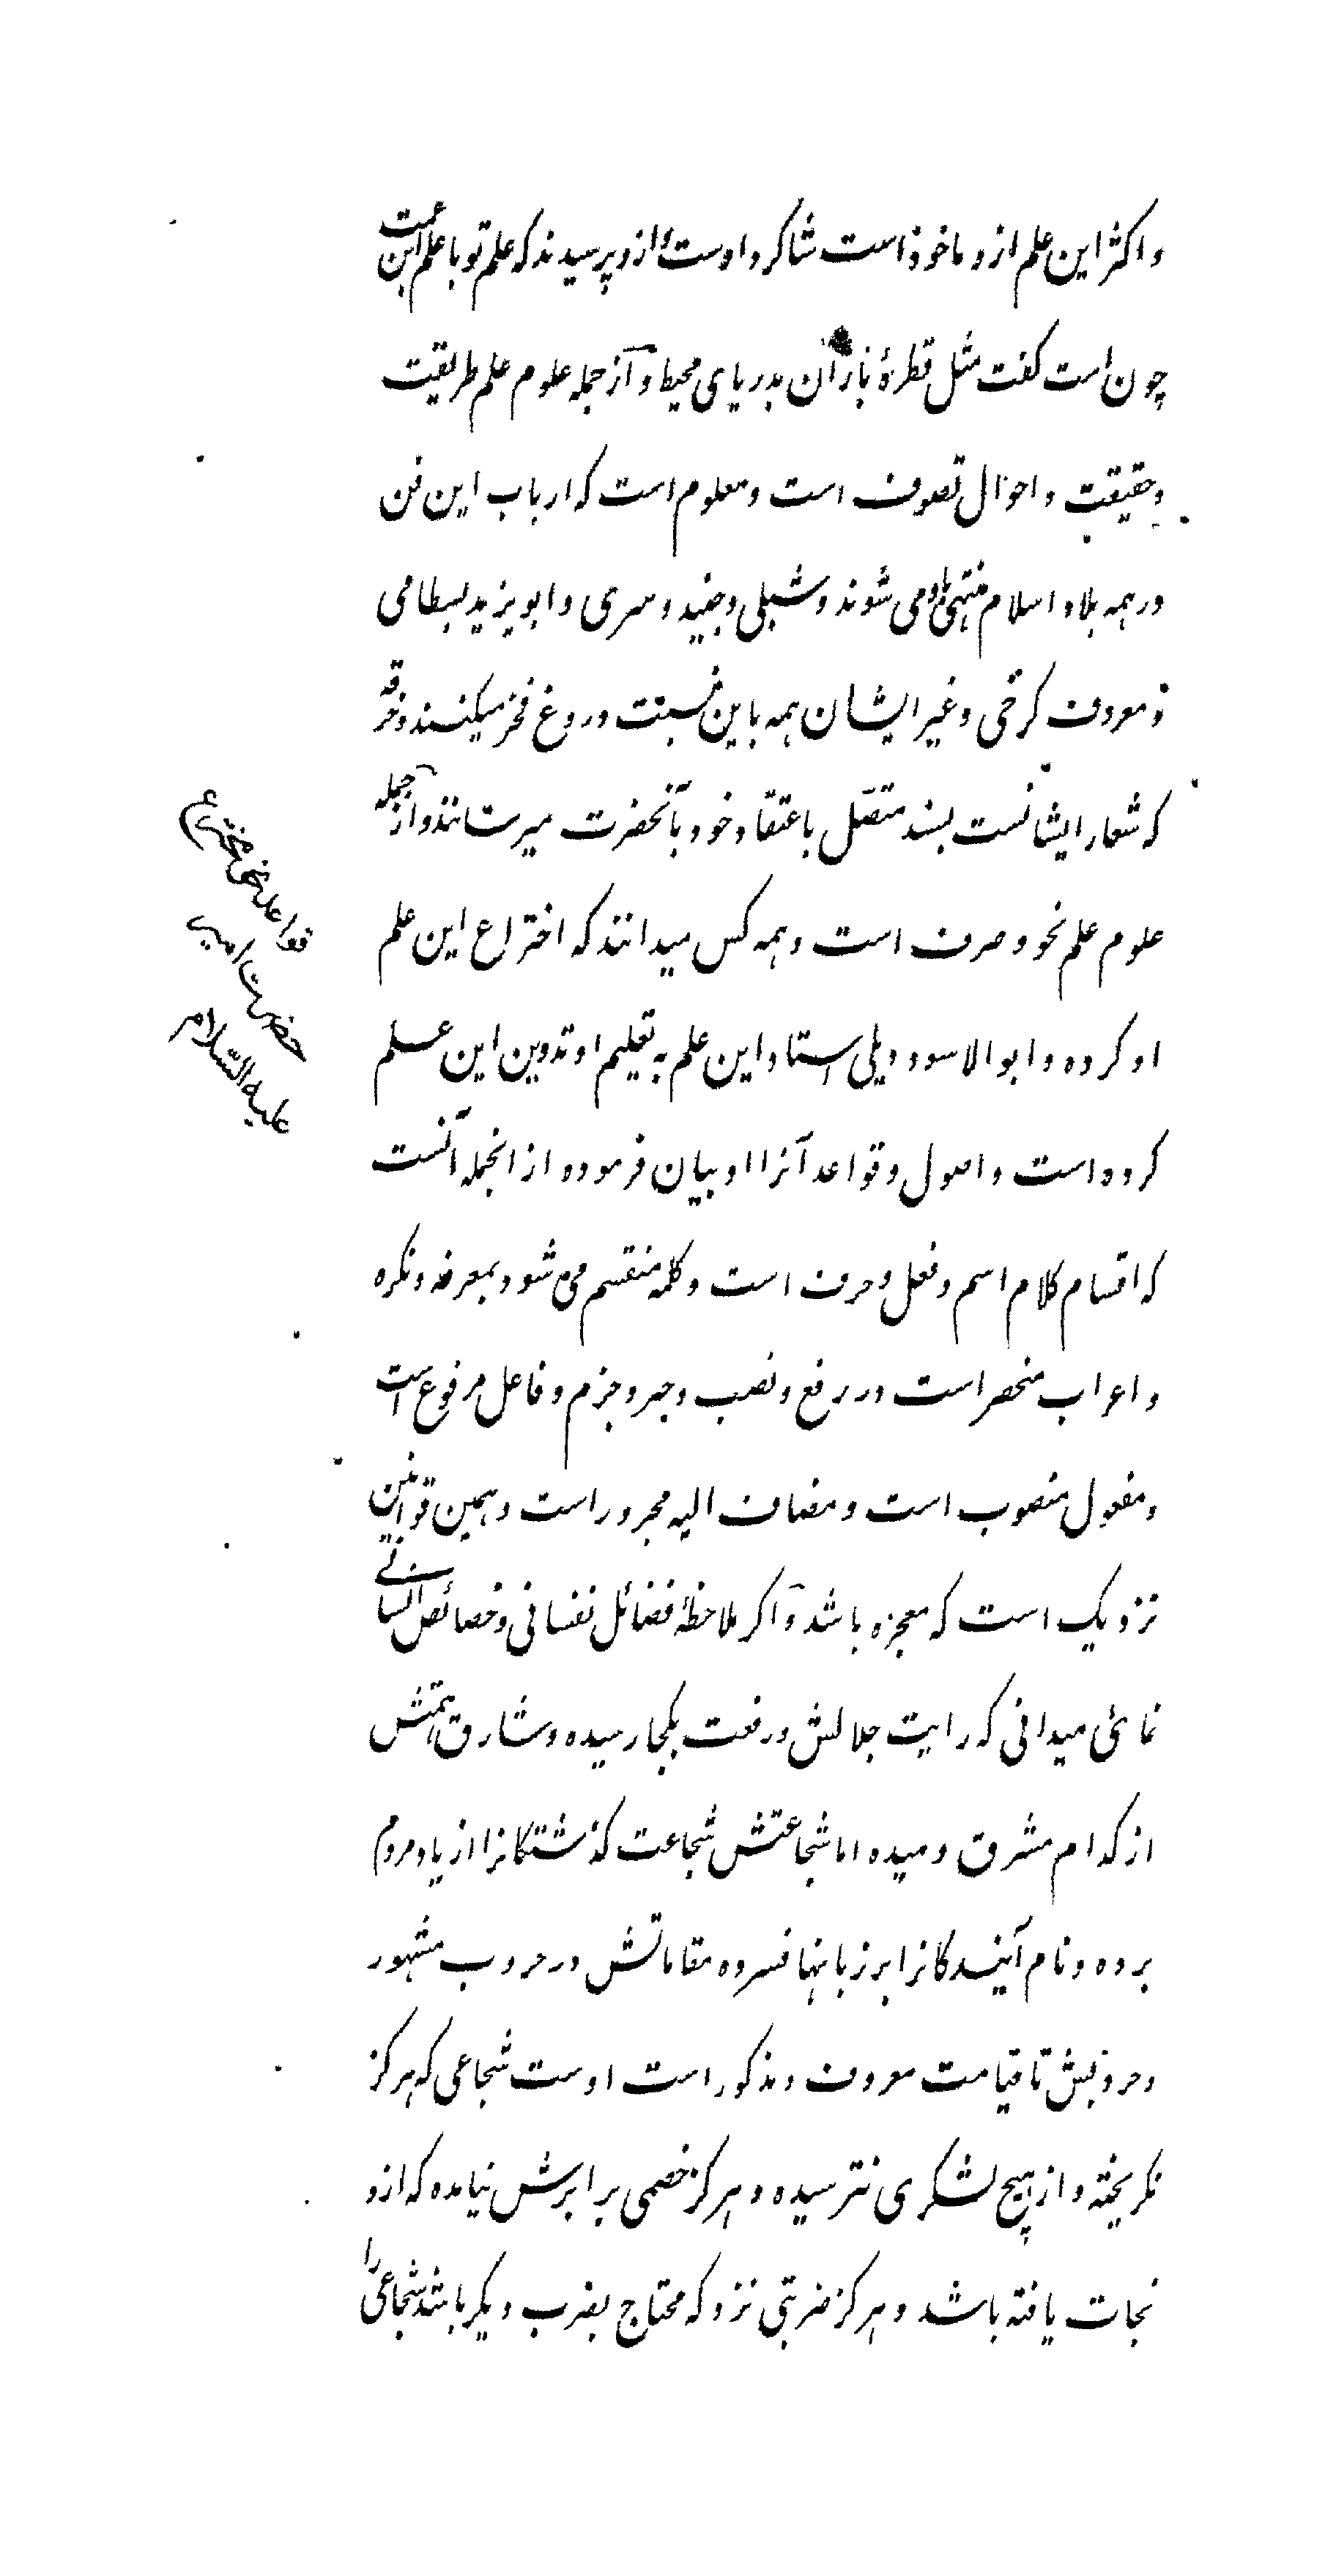 و اکثر این علم ازو ماخوذ است شاکرد اوست ازو پرسیدند که علم تو با علم ابن عمت
چون است کفت مثل قطرهٔ باران بدریای محیط و از جمله علوم علم طریقت
و حقیقت و احوال تصوف است و معلوم است که ارباب این فن
در همه بلاد اسلام منتهی باو می شوند و شبلی و جنید و سری و ابو یزید بسطامی
و معروف کرخی و غیر ایشان همه باین نسبت دروغ فخر میکنند و خرقه
که شعار ایشانست بسند متصل باعتقاد خود بآنحضرت میرسانند و از جمله
علوم علم نحو و صرف است و همه کس میدانند که اختراع این علم
او کرده و ابو الاسود دیلی استاد این علم به تعلیم او تدوین این علم
کرده است و اصول و قواعد آنرا او بیان فرموده از انجمله آنست
که اقسام کلام اسم و فعل و حرف است و کلمه منقسم می شود بمعرفه و نکره
و اعراب منحصر است در رفع و نصب و جر و جزم و فاعل مرفوع است
و مفعول منصوب است و مضاف الیه مجرور است و همین قوانین
نزدیک است که معجزه باشد و اکر ملاحظهٔ فضائل نفسانی و خصائص انسانے
نمائی میدانی که رایت جلالش و رفعت بکجا رسیده و شارق همتش
از کدام مشرق دمیده اما شجاعتش شجاعت کذشتکانرا از یاد مردم
برده و نام آیندکانرا بر زبانها فسرده مقاماتش در حروب مشهور
و حروبش تا قیامت معروف و مذکور است اوست شجاعی که هرکز
نکریخته و از هیچ لشکری نترسیده و هرکز خصمی برابرش نیامده که ازو
نجات یافته باشد و هرکز ضربتی نزد که محتاج بضرب دیکر باشد شجاعی را
قواعد نحو مخترع
حضرت امیر
علیه السّلام